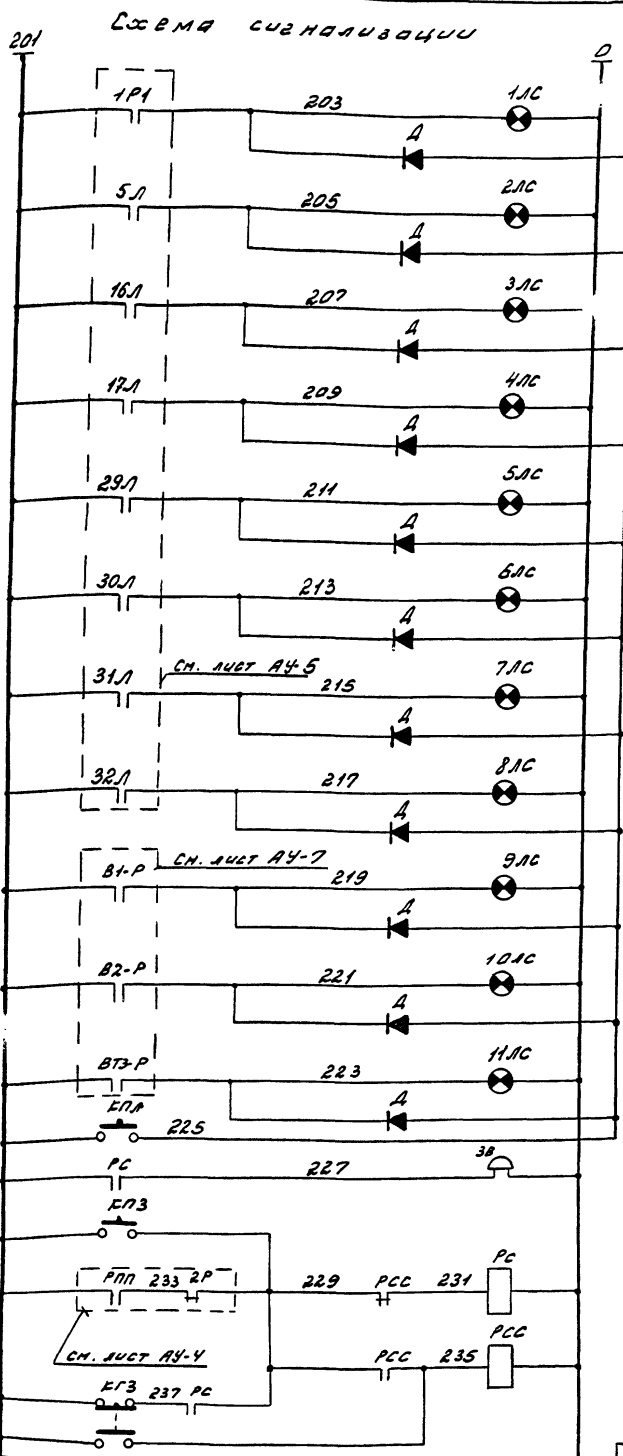 Схема сигнализации
201
0
1Р1 203 1ЛС
Д
5Л 205 2ЛС
Д
16Л 207 3ЛС
Д
17Л 209 4ЛС
Д
29Л 211 5ЛС
Д
30Л 213 6ЛС
Д
См. лист АУ-5
31Л 215 7ЛС
Д
32Л 217 8ЛС
Д
См. лист АУ-7
В1-Р 219 9ЛС
Д
В2-Р 221 10ЛС
Д
ВТ3-Р 223 11ЛС
Д
КПЛ
225
РС 227 ЗВ
КПЗ
РПП 233 2Р 229 РСС 231 РС
См. лист АУ-4
РСС 235 РСС
КГЗ 237 РС